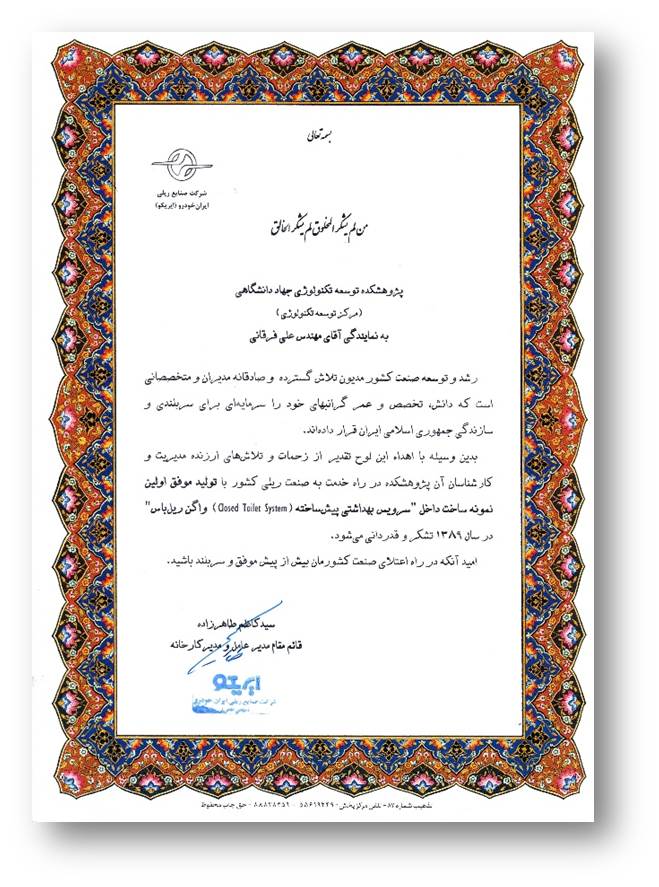 بسمه تعالی
شرکت صنایع ریلی
ایران خودرو (ایریکو)
من لم یشکر المخلوق لم یشکر الخالق
پژوهشکده توسعه تکنولوژی جهاد دانشگاهی
(مرکز توسعه تکنولوژی)
به نمایندگی آقای مهندس علی فرقانی
رشد و توسعه صنعت کشور مدیون تلاش گسترده و صادقانه مدیران و متخصصانی
است که دانش، تخصص و عمر گرانبهای خود را سرمایه‌ای برای سربلندی و
سازندگی جمهوری اسلامی ایران قرار داده‌اند.
بدین وسیله با اهداء این لوح تقدیر از زحمات و تلاش‌های ارزنده مدیریت و
کارشناسان آن پژوهشکده در راه خدمت به صنعت ریلی کشور با تولید موفق اولین
نمونه ساخت داخل "سرویس بهداشتی پیش‌ساخته (Closed Toilet System) واگن ریل‌باس"
در سال ۱۳۸۹ تشکر و قدردانی می‌شود.
امید آنکه در راه اعتلای صنعت کشورمان بیش از پیش موفق و سربلند باشید.
سید کاظم طاهرزاده
قائم مقام مدیر عامل و مدیر کارخانه
ایریکو
شرکت صنایع ریلی ایران خودرو
حق چاپ محفوظ